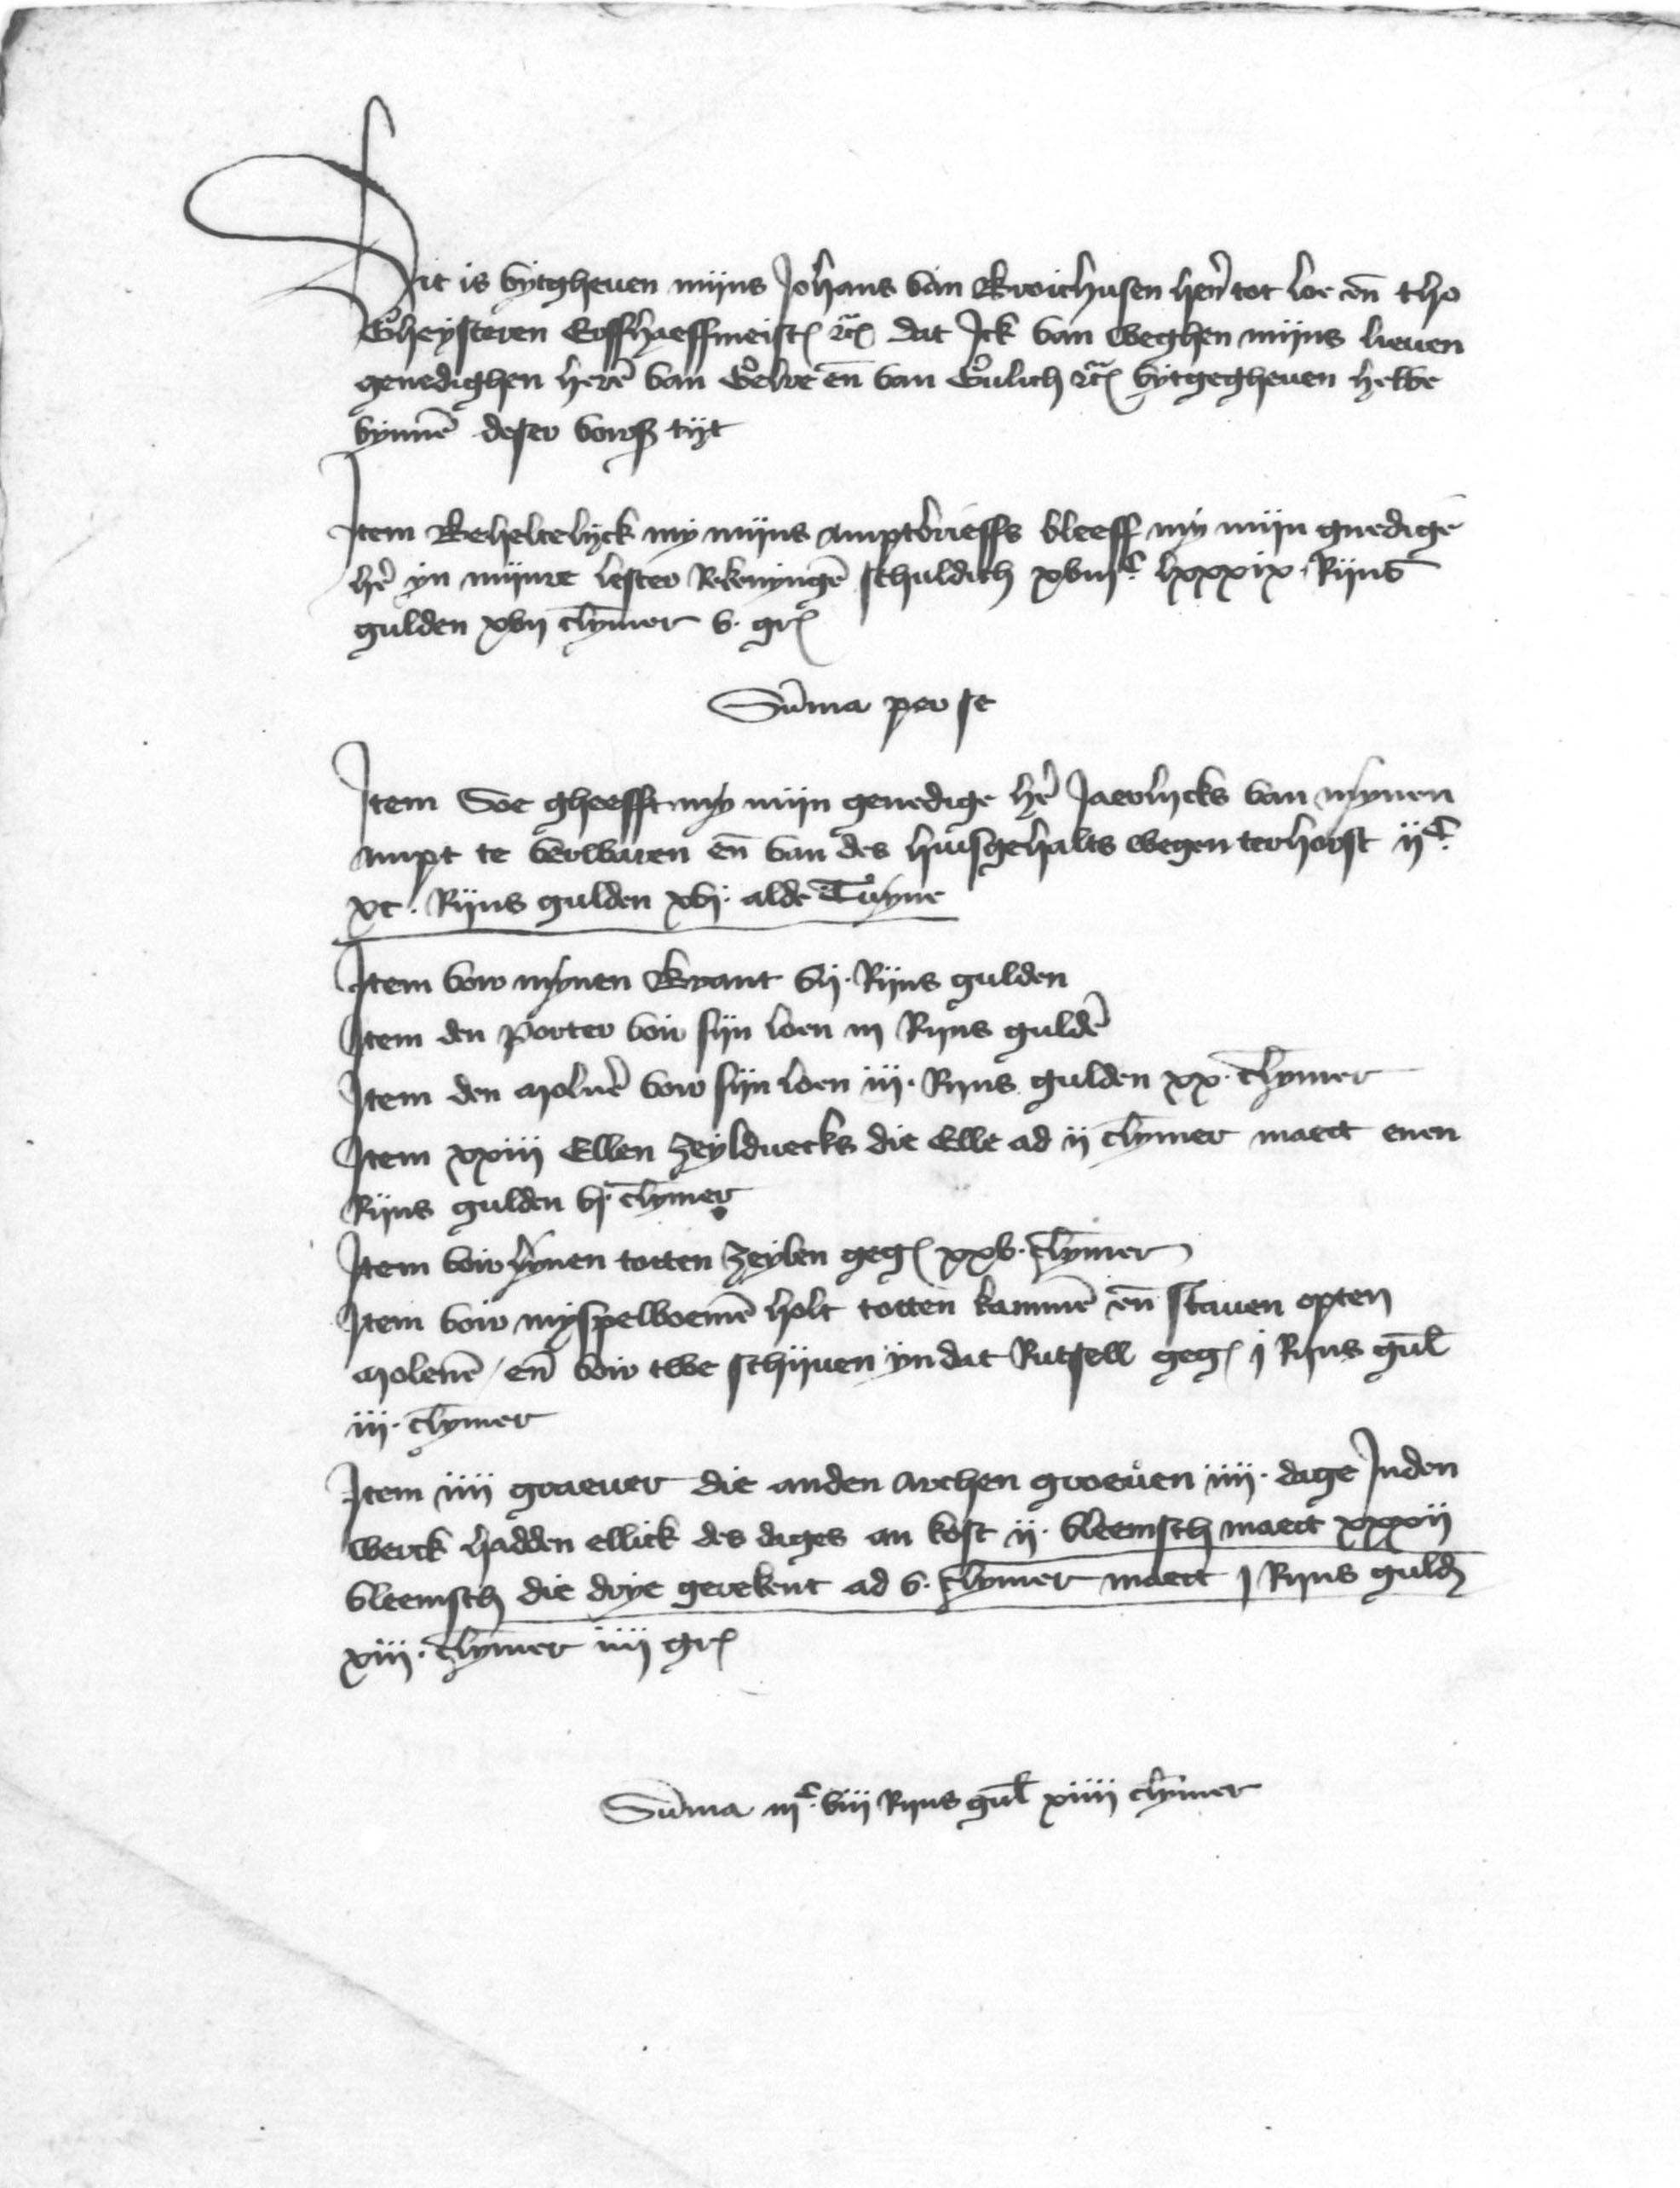 Dit is vytgheuen mijns Johans van Broichusen hen̄ tot loe en̄ tho
Gheysteren Erffhaeffmeist̄ etc̄ dat Ick van weghen mijns lieuen
genedighen herē van Gelre en̄ van Gulich etc̄ vytgegheuen hebbe
bynnē deser vorß tijt
Item Beheltelijck my mijns amptbrieffs bleeff my mijn gnedigē
hē yn mijnre lester Rekenyngē schuldich xviijᶜ lxxxix Rijns̄
gulden xvij cly̅mer v. gr̄
Sūma per se
Item Soe gheefft my mijn genedige hē Jaerlycks van mynen
ampt te verwaren en̄ van des huisgehalts wegen terhorst ijᶜ
xc. Rijns gulden xvj. alde Tuyne
Item vor mynen Brant vij. Rijns gulden
Item den Porter voir sijn loen iij Rijns guldē
Item den Molnē vor sijn loen iij. Rijns gulden xx. cly̅mer
Item xxiij Ellen zeylduecks die Elle ad ij cly̅mer maect enen
Rijns gulden vj. cly̅mer
Item voir lynen totten zeylen geḡ xxv. cly̅mer
Item voir myspelboemē holt totten kammē en̄ stauen opten
Molenē / en̄ voir twe schijuen yn dat Rutsell geḡ j Rijns gul̄
iij. cly̅mer
Item iiij graeuer die anden Archen groeuen iiij. dage Inden
werck hadden ellick des dages an kost ij. vleemsch maect xxxij
vleemsch die drye gerekent ad v. cly̅mer maect j Rijns guld̄
xiij. cly̅mer iiij gr̄
Sūma iijᶜ. viij Rijns gul̄ xiiij cly̅mer